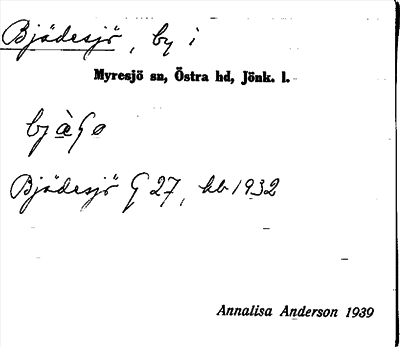 Bjädesjö, by i
Myresjö sn, Östra hd, Jönk. l.
Bjädesjö G 27, kb 1932
Annalisa Anderson 1939